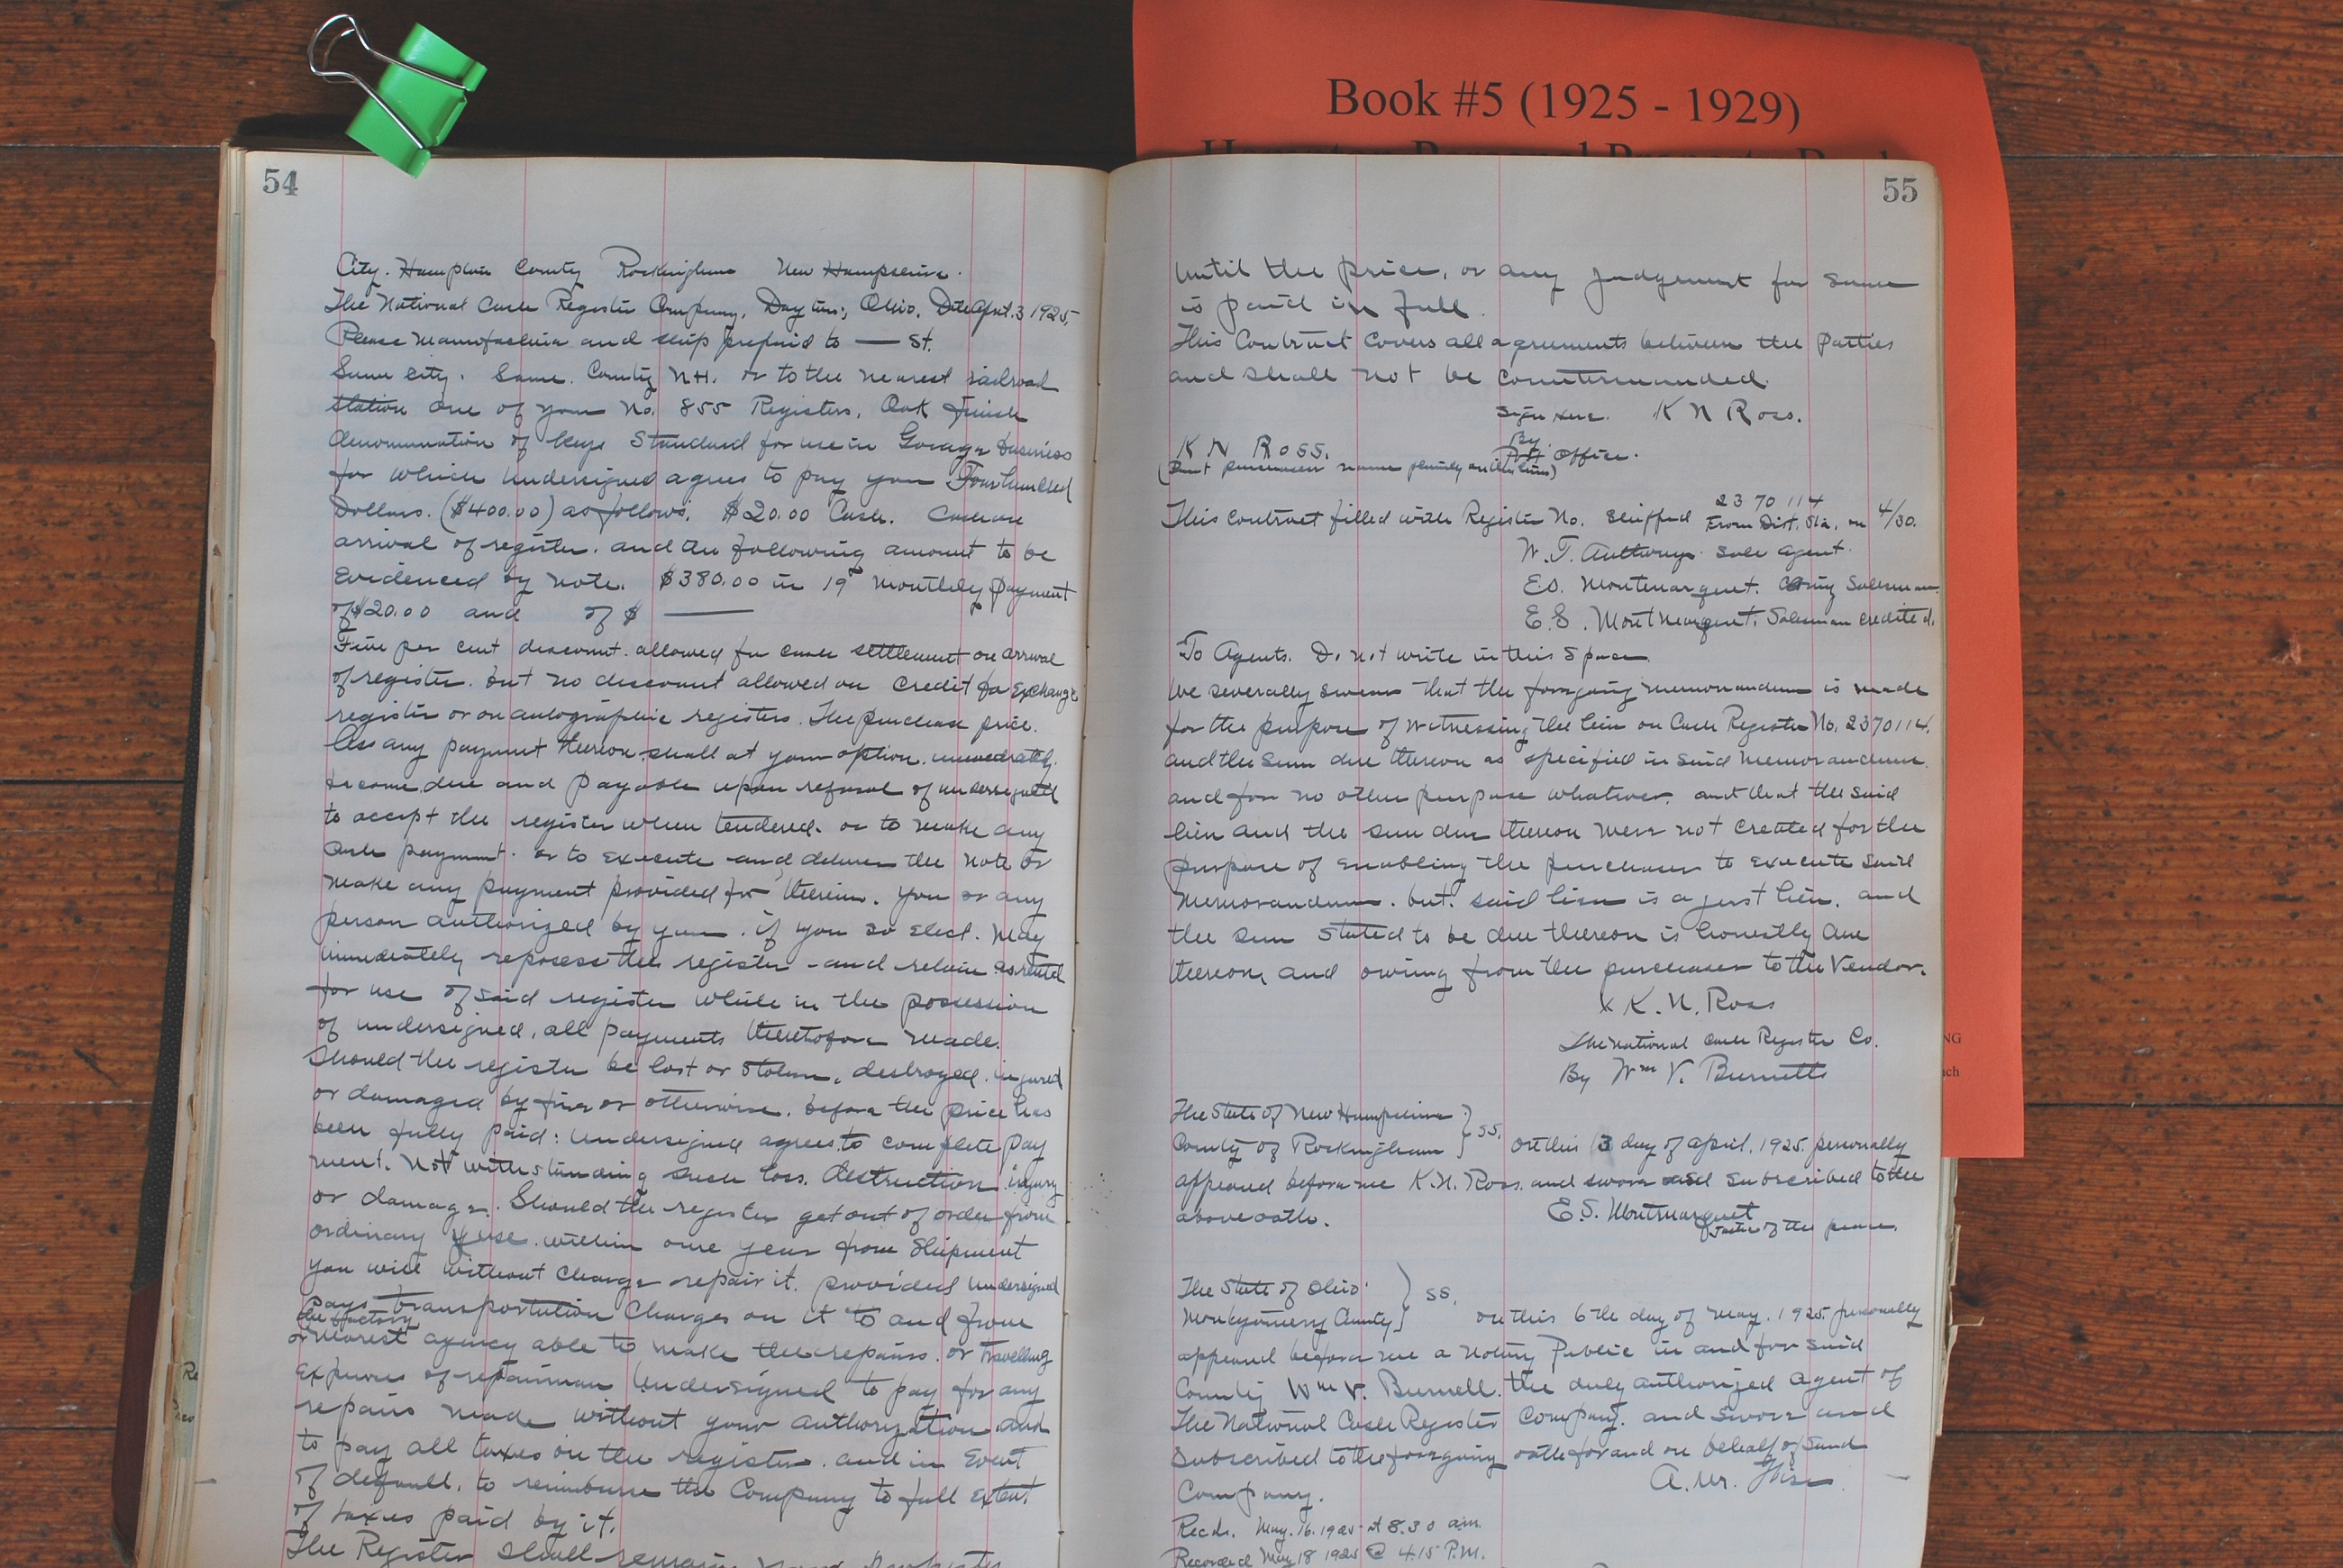 Book #5 (1925 - 1929)
54
City. Hampton County Rockingham New Hampshire.
The National Cash Register Company, Dayton, Ohio. Date April 3 1925.
Please Manufacture and ship prepaid to — St.
Same City. Same County N.H. or to the nearest railroad
station one of your No. 855 Registers, Oak finish
denomination of keys Standard for use in Garage business
for which undersigned agrees to pay you Four hundred
Dollars. ($400.00) as follows. $20.00 Cash. Cash on
arrival of register. and the following amount to be
evidenced by note. $380.00 in 19 monthly payment
of $20.00 and of $ —
Five per cent discount allowed for cash settlement on arrival
of register. but no discount allowed on credit for exchange
register or on autographic registers. The purchase price.
less any payment thereon shall at your option. immediately.
become due and payable upon refusal of undersigned
to accept the register when tendered. or to make any
cash payment. or to execute and deliver the note or
make any payment provided for therein. You or any
person authorized by you. if you so elect. May
immediately reposess the register and retain as rental
for use of said register while in the possession
of undersigned, all payments theretofore made.
Should the register be lost or stolen, destroyed. injured
or damaged by fire or otherwise. before the price has
been fully paid: undersigned agrees to complete pay
ment. Not withstanding such loss. destruction. injury
or damage. Should the register get out of order from
ordinary use. within one year from shipment
you will without charge repair it. provided undersigned
pays transportation charges on it to and from
the factory
or nearest agency able to make the repairs. or travelling
expenses of repairman Undersigned to pay for any
repairs made without your authorization. and
to pay all taxes on the register. and in event
of default. to reimburse the Company to full extent
of taxes paid by it.
The Register shall remain your
55
until the price, or any judgement for same
is paid in full.
This Contract covers all agreements between the parties
and shall not be countermanded.
Sign here. K N Ross.
K N Ross. By Office.
(Print purchasers name plainly on this line)
2370114
This contract filled with Register No. shipped From Dist. Sta. on 4/30.
W. T. Anthony. Sole agent.
E.S. Montmarquet. Salesman
E.S. Montmarquet. Salesman credited.
To Agents. Do not write in this Space
We severally swear that the foregoing memorandum is made
for the purpose of witnessing the lien on Cash Register No. 2370114.
and the sum due thereon as specified in said memorandum.
and for no other purpose whatever. and that the said
lien and the sum due thereon were not created for the
purpose of enabling the purchaser to execute said
Memorandum. but. said lien is a just lien. and
the sum stated to be due thereon is honestly due
thereon, and owing from the purchaser to the Vendor.
x K. N. Ross
The National Cash Register Co.
By Wm V. Burnett
The State of New Hampshire
County of Rockingham } ss. On this 3 day of April. 1925. personally
appeared before me K.N. Ross. and swore and subscribed to the
above oath. E.S. Montmarquet
Justice of the peace.
The State of Ohio
Montgomery County } ss. on this 6th day of May. 1925. personally
appeared before me a Notary Public in and for said
County Wm V. Burnell. the duly authorized agent of
The National Cash Register Company. and swore and
subscribed to the foregoing oath for and on behalf of said
Company. A. W.
Recd. May. 16. 1925 at 8.30 a.m.
Recorded May 18 1925 @ 4.15 P.M.